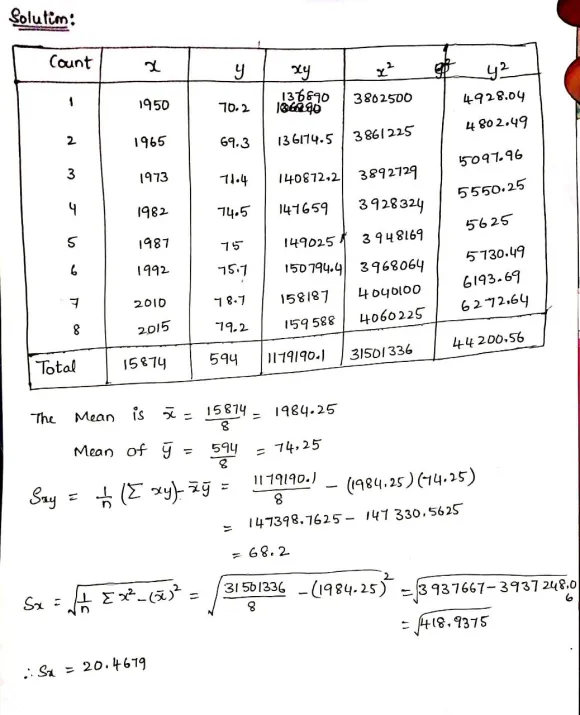 Solution:
Count x y xy x² y²
1 1950 70.2 136890 3802500 4928.04
2 1965 69.3 136174.5 3861225 4802.49
3 1973 71.4 140872.2 3892729 5097.96
4 1982 74.5 147659 3928324 5550.25
5 1987 75 149025 3948169 5625
6 1992 75.7 150794.4 3968064 5730.49
7 2010 78.7 158187 4040100 6193.69
8 2015 79.2 159588 4060225 6272.64
Total 15874 594 1179190.1 31501336 44200.56
The Mean is x̄ = 15874/8 = 1984.25
Mean of ȳ = 594/8 = 74.25
Sxy = 1/n (Σxy) - x̄ȳ = 1179190.1/8 - (1984.25)(74.25)
= 147398.7625 - 147330.5625
= 68.2
Sx = √(1/n Σx² - (x̄)²) = √(31501336/8 - (1984.25)²) = √(3937667 - 3937248.06)
= √418.9375
∴ Sx = 20.4679